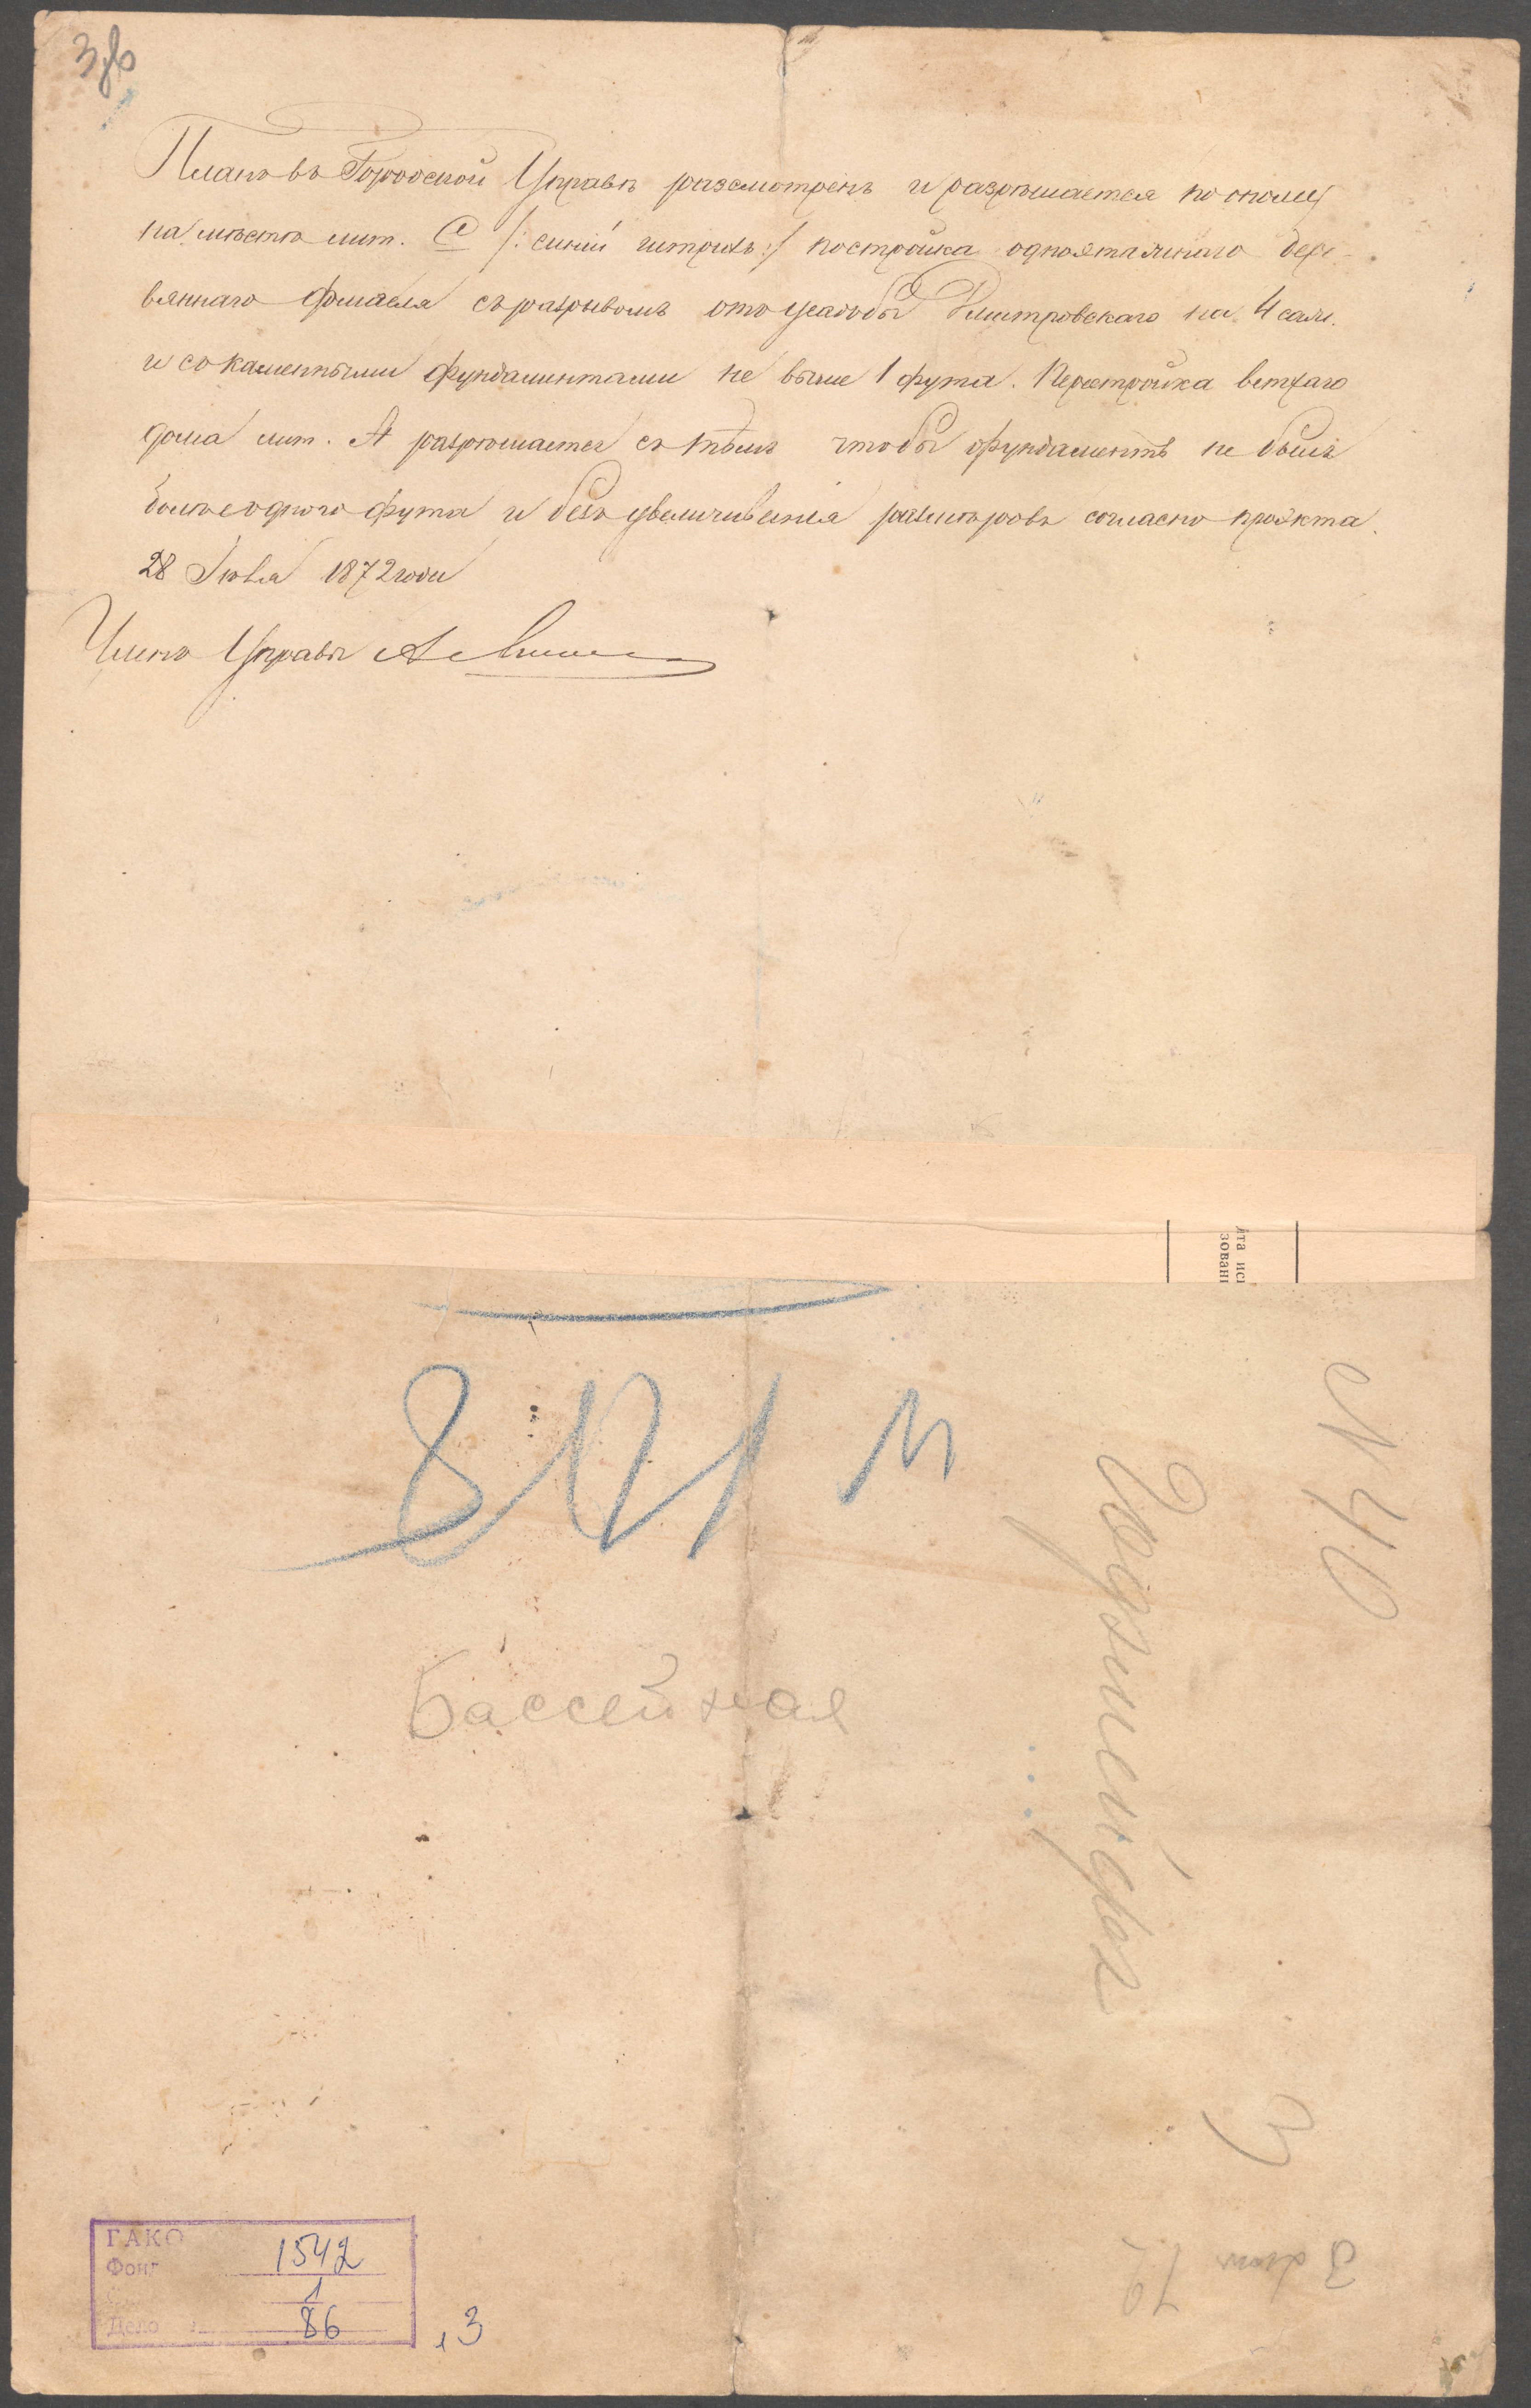 3об
Планъ въ Городской Управѣ разсмотренъ и разрѣшается по оному
на мѣстѣ лит. С /: синій штрихъ :/ постройка одноэтажнаго дере-
вяннаго флигеля съ разрывомъ отъ усадьбы Дмитровскаго на 4 саж.
и съ каменными фундаментами не выше 1 фута. Перестройка ветхаго
дома лит. А разрѣшается съ тѣмъ чтобы фундаментъ не былъ
болѣе одного фута и безъ увеличиванія размѣровъ согласно проэкта.
28 Іюля 1872 года
Членъ Управы
йта исп
зовані
N 40
Бассейная
3
ГАКО
Фонд 1542
1
Дело 86
, 3